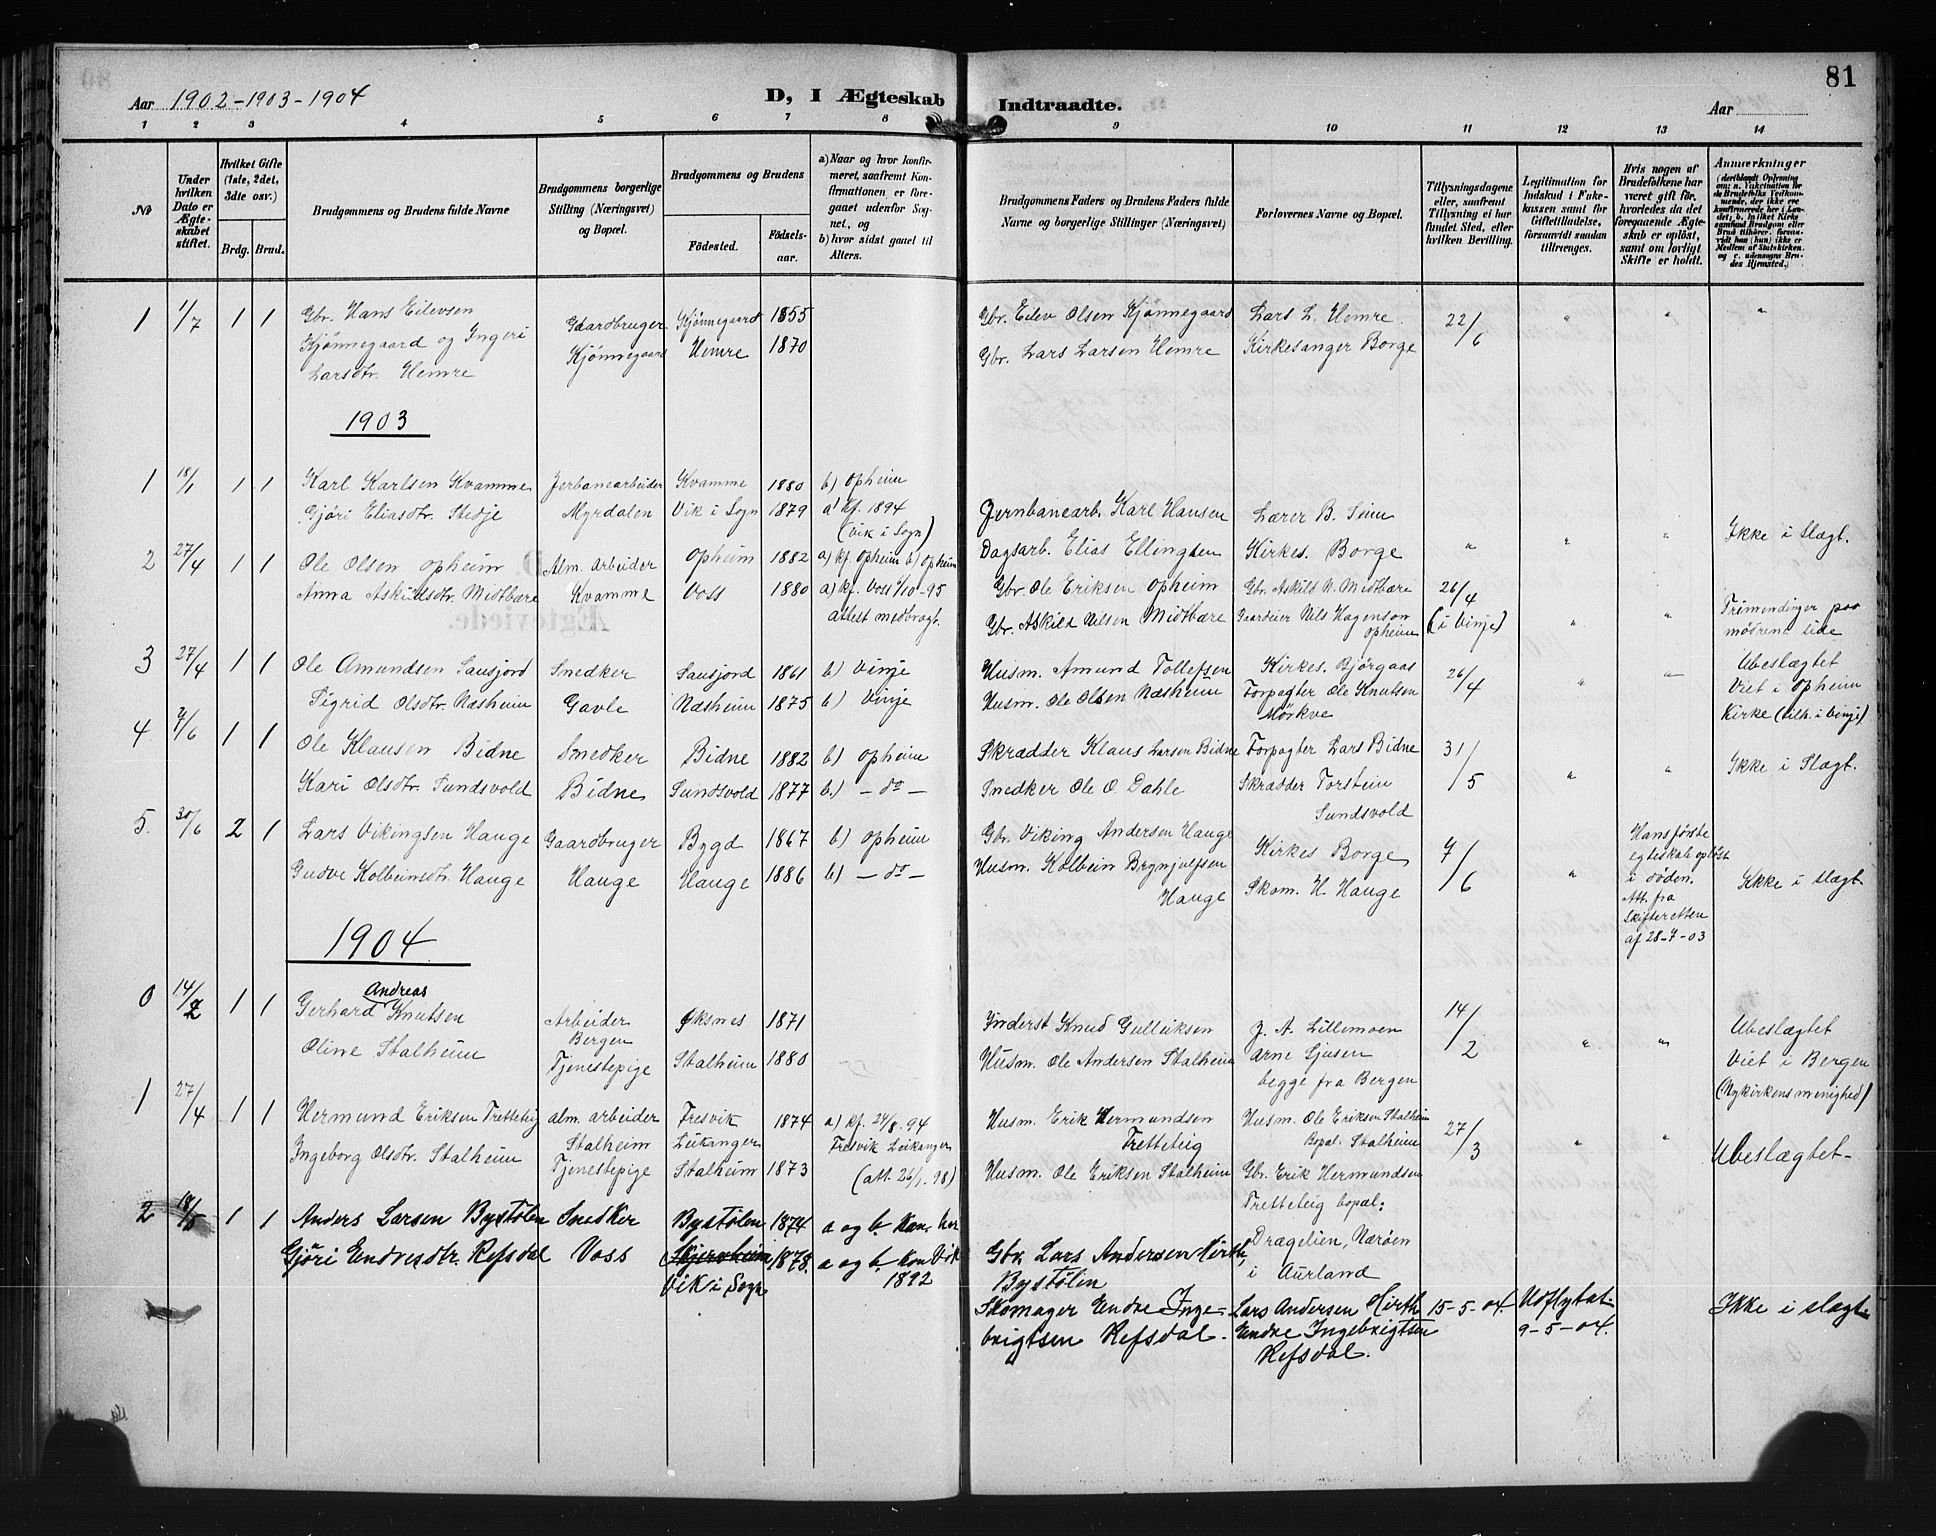 81
Aar 1902-1903-1904
D, I Ægteskab Indtraadte.
Aar
1 2 3 4 5 6 7 8 9 10 11 12 13 14
No
Under hvilken Dato er Ægteskabet stiftet.
Hvilket Gifte (1ste, 2det, 3dte osv.)
Brdg. Brud.
Brudgommens og Brudens fulde Navne
Brudgommens borgerlige Stilling (Næringsvei) og Bopæl.
Brudgommens og Brudens
Fødested.
Fødselsaar.
a) Naar og hvor konfirmeret, saafremt Konfirmationen er foregaaet udenfor Sognet, og
b) hvor sidst gaaet til Alters.
Brudgommens Faders og Brudens Faders fulde Navne og borgerlige Stillinger (Næringsvei)
Forlovernes Navne og Bopæl.
Tillysningsdagene eller, saafremt Tillysning ei har fundet Sted, efter hvilken Bevilling.
Legitimation for Indskud i Enkekassen samt for Giftetilladelse, forsaavidt saadan tiltrænges.
Hvis nogen af Brudefolkene har været gift før, hvorledes da det foregaaende Ægteskab er opløst, samt om lovligt Skifte er holdt.
Anmærkninger
1 1/7 1 1 Gbr. Hans Eilevsen Gaardbruger Kjønnegaard 1855 Gbr. Eilev Olsen Kjønnegaard Lars L. Hemre 22/6 " " "
Kjønnegaard og Ingeri Kjønnegaard Hemre 1870 Gbr. Lars Larsen Hemre Kirkesanger Borge
Larsdtr. Hemre
1903
1 18/1 1 1 Karl Karlsen Kvamme Jerbanearbeider Kvamme 1880 b) Opheim Jernbanearb. Karl Hansen Lærer B. Seim
Gjøri Eliasdtr. Stedje Myrdalen Vik i Sogn 1879 a) kf. 1894 Dagsarb. Elias Ellingsen Kirkes. Borge " " " Ikke i Slægt.
(Vik i Sogn)
2 27/4 1 1 Ole Olsen Opheim Alm. arbeider Opheim 1882 a) kf. Opheim b) Opheim Gbr. Ole Eriksen Opheim Gbr. Askild N. Midtbære 26/4
Anna Askildsdtr. Midtbære Kvamme Voss 1880 a) kf. Voss 6/10-95 Gbr. Askild Nilsen Midtbære Gaardeier Nils Hagenson (i Vinje) " " Tremendinger paa
attest medbragt. Opheim mødrene side
3 27/4 1 1 Ole Amundsen Sausjord Snedker Sausjord 1861 b) Vinje Husm. Amund Tollefsen Kirkes. Bjørgaas 26/4 " " Ubeslægtet
Sigrid Olsdtr. Næsheim Gavle Næsheim 1875 b) Vinje Husm. Ole Olsen Næsheim Forpagter Ole Knutsen Viet i Opheim
Mørkve Kirke (tilh. i Vinje)
4 7/6 1 1 Ole Klausen Bidne Snedker Bidne 1882 b) Opheim Skrædder Klaus Larsen Bidne Forpagter Lars Bidne 31/5 " " Ikke i Slægt.
Kari Olsdtr. Sundsvold Bidne Sundsvold 1877 b.) - do - Snedker Ole O. Dahle Skrædder Torstein
Sundsvold
5. 30/6 2 1 Lars Vikingsen Hauge Gaardbruger Bygd 1867 b) Opheim Gbr. Viking Andersen Hauge Kirkes Borge 7/6 " Hans første
Gudve Kolbeinsdtr. Hauge Hauge Hauge 1886 b) - do - Husm. Kolbein Brynjulfsen Skom. H. Hauge egteskab opløst
Hauge i døden. Ikke i slægt.
Att. fra
Skifteretten
af 28-7-03
1904
0 14/2 1 1 Gerhard Andreas Knutsen Arbeider Øksnes 1871 Inderst Knud Gulleiksen J. A. Lillemoen 14/2 " " Ubeslægtet
Oline Stalheim Bergen Husm. Ole Andersen Stalheim Arne Gjusen Viet i Bergen
Tjenestepige Stalheim 1880 begge fra Bergen (Nykirkens menighed)
1 27/4 1 1 Hermund Eriksen Tretteteig alm. arbeider Fresvik 1874 a) kf. 24/8.94 Husm. Erik Hermundsen Husm. Ole Eriksen Stalheim 27/3 " "
Ingeborg Olsdtr. Stalheim Stalheim Leikanger Fresvik Leikanger Tretteteig Bopæl: Stalheim Ubeslægtet-
Tjenestepige Stalheim 1873 (att. 26/1. 98) Husm. Ole Eriksen Stalheim Gbr. Erik Hermundsen
Tretteteig bopæl:
Drægelien, Nærøen
i Aurland
2 1 1 Anders Larsen Bystølen Snedker Bystølen 1874 a og b. Kon. her Gbr. Lars Andersen Hirth,
Gjöri Endresdtr. Refsdal Voss 1878. a og b. Kon Vik Bystølen
Vik i Sogn 1892
Skomager Endre Inge- Lars Andersen Hirth 15-5-04. Udflyttat- Ikke i slægt.
brigtsen Refsdal. Endre Ingebrigtsen 9-5-04.
Refsdal.